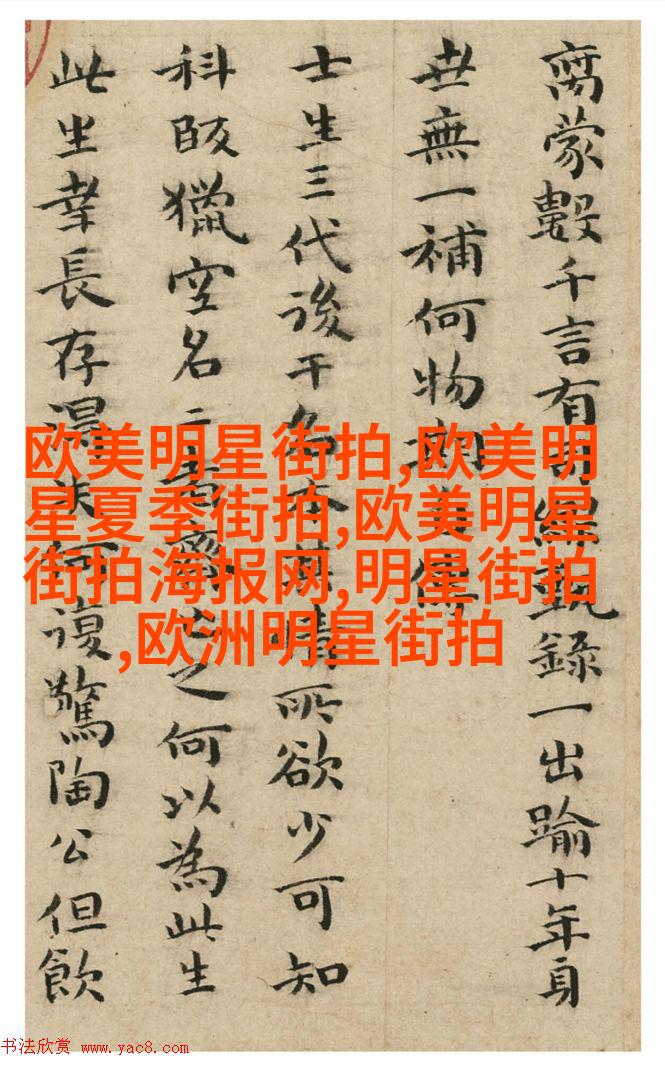 蒙數千言有錄一出踰十年身
世無一補何物
士生三代後干名本情所欲少可知
科獵空名之何以為此生
此生幸長存得失何復驚陶公但飲
欧美明星街拍,欧美明
星夏季街拍,欧美明星
街拍海报网,明星街拍
,欧洲明星街拍
书法欣赏 www.yac8.com